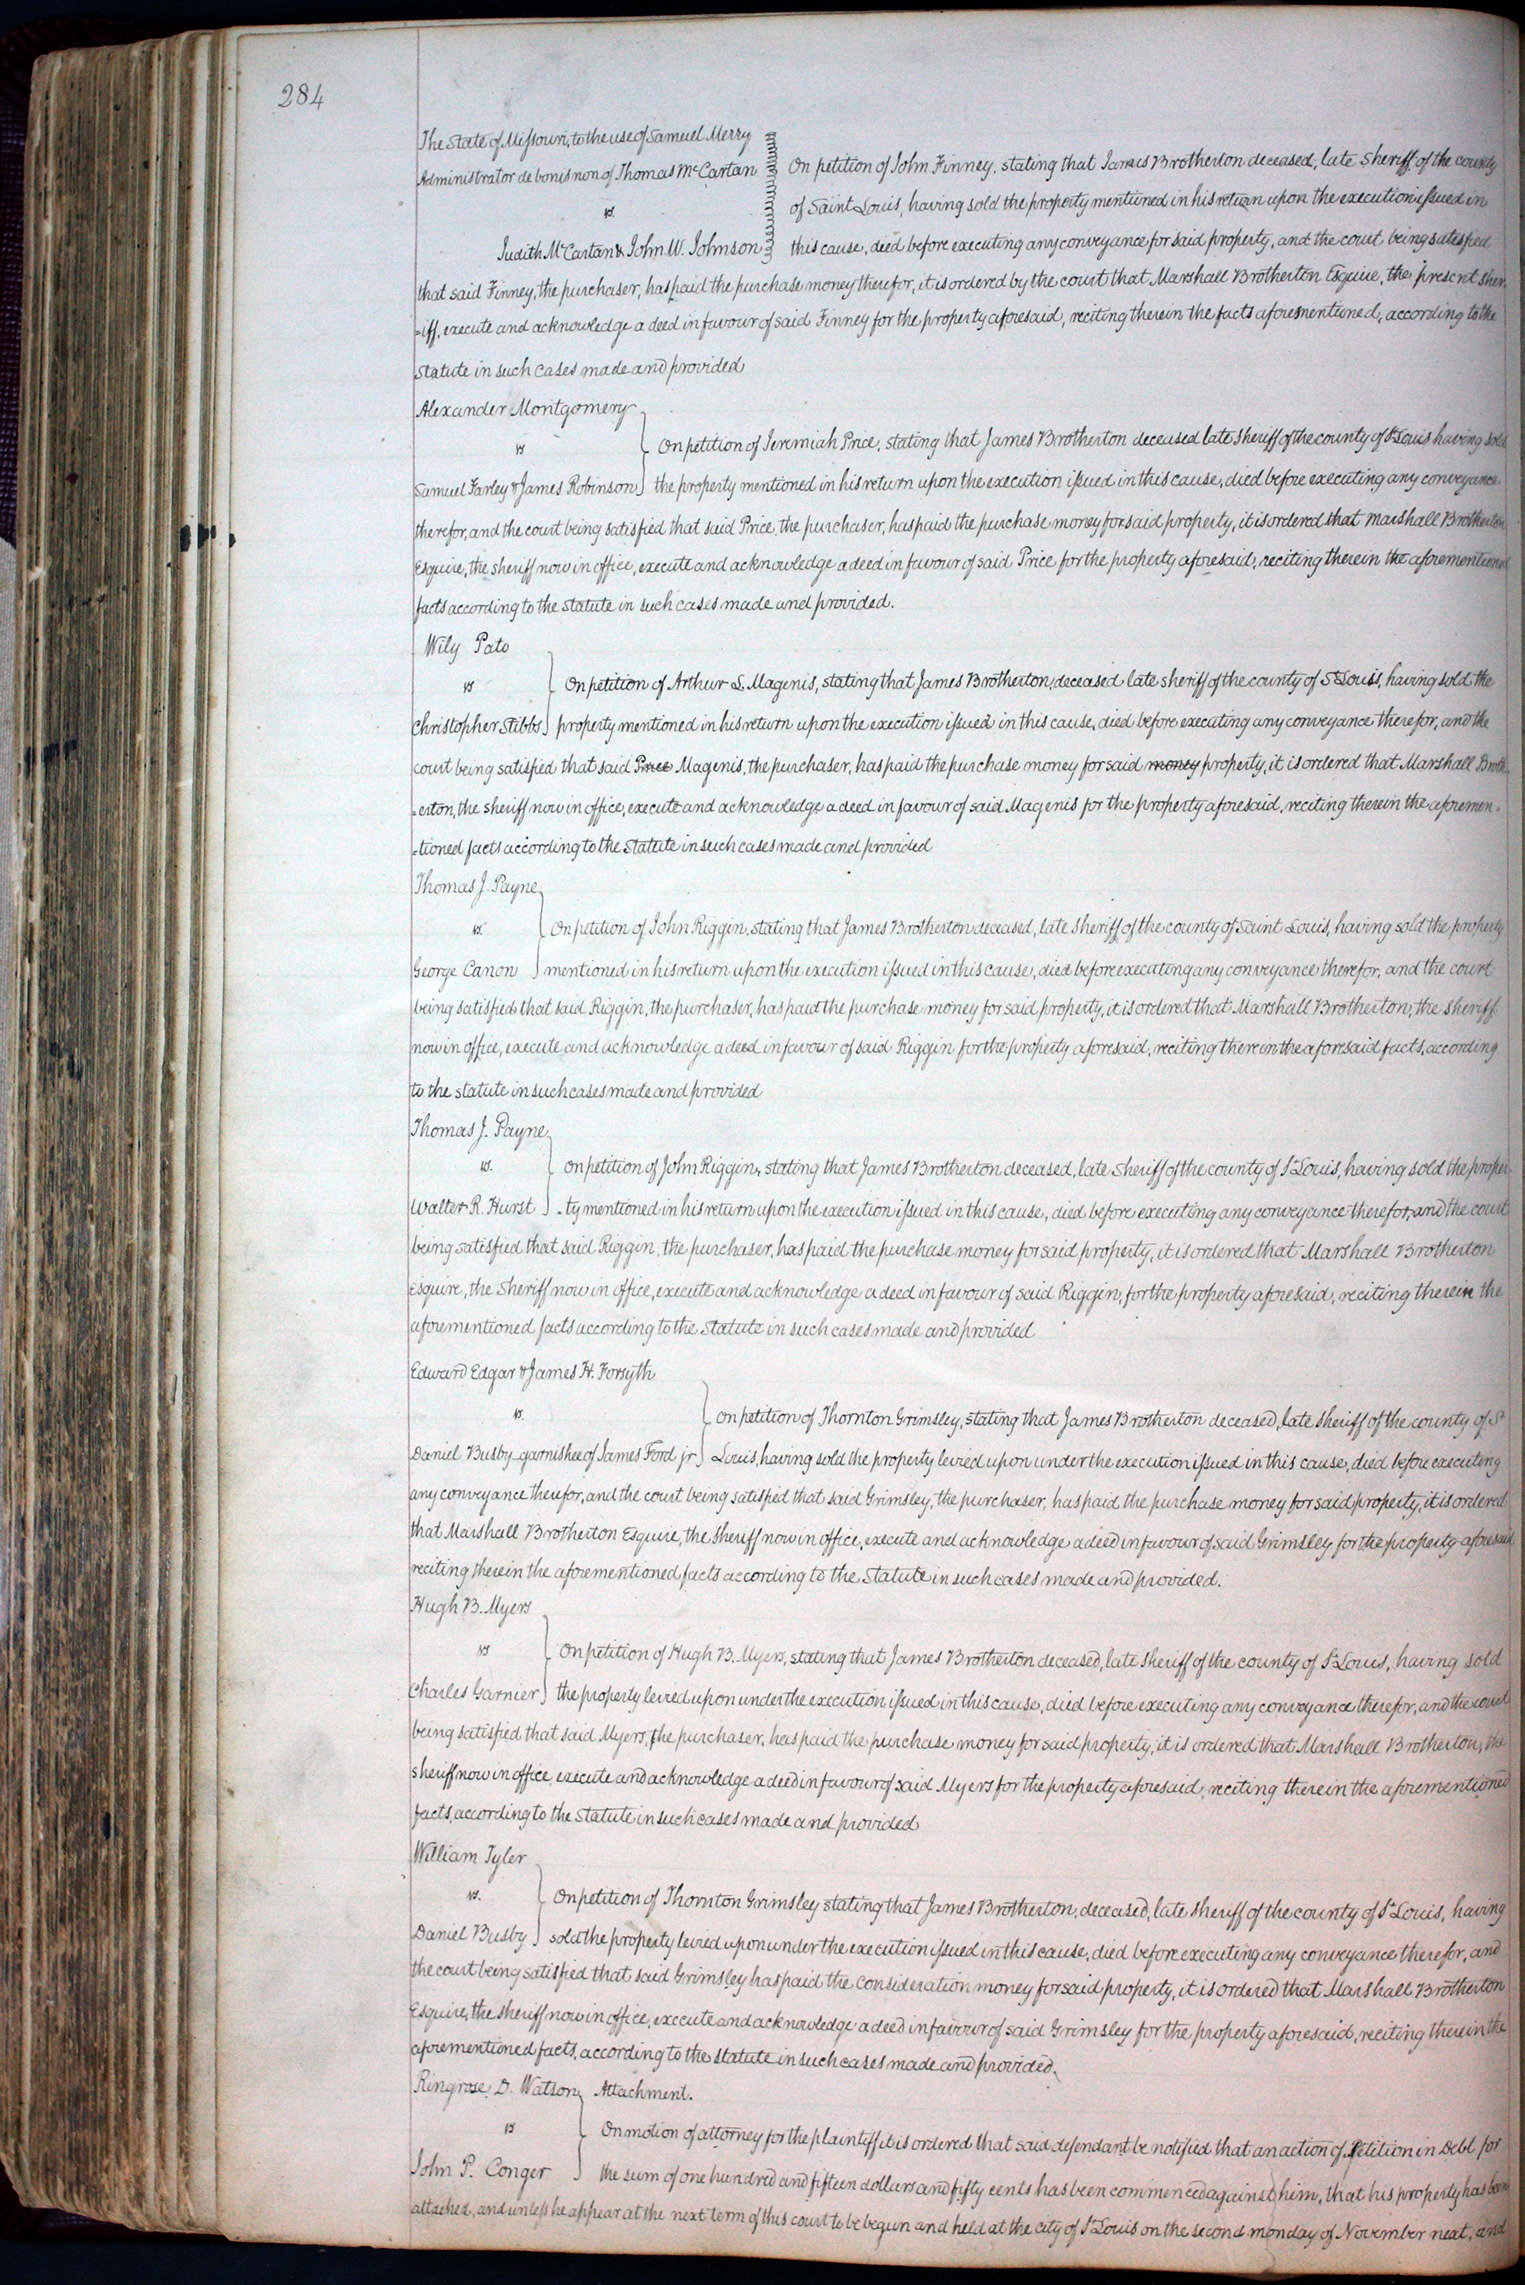 284
The State of Missouri, to the use of Samuel Merry
Administrator de bonis non of Thomas McCartan
vs.
Judith McCartan & John W. Johnson
On petition of John Finney, stating that James Brotherton deceased, late Sheriff of the county
of Saint Louis, having sold the property mentioned in his return upon the execution issued in
this cause, died before executing any conveyance for said property, and the court being satisfied
that said Finney, the purchaser, has paid the purchase money therefor, it is ordered by the court that Marshall Brotherton Esquire, the present sher
=iff, execute and acknowledge a deed in favour of said Finney for the property aforesaid, reciting therein the facts aforementioned, according to the
statute in such cases made and provided
Alexander Montgomery
vs
Samuel Farley & James Robinson
On petition of Jeremiah Price, stating that James Brotherton deceased late Sheriff of the county of St Louis having sold
the property mentioned in his return upon the execution issued in this cause, died before executing any conveyance
therefor, and the court being satisfied that said Price, the purchaser, has paid the purchase money for said property, it is ordered that Marshall Brotherton
Esquire, the sheriff now in office, execute and acknowledge a deed in favour of said Price for the property aforesaid, reciting therein the aforementioned
facts according to the statute in such cases made and provided.
Wily Pato
vs
Christopher Stibbs
On petition of Arthur L. Magenis, stating that James Brotherton, deceased late sheriff of the county of St Louis, having sold the
property mentioned in his return upon the execution issued in this cause, died before executing any conveyance therefor, and the
court being satisfied that said Price Magenis, the purchaser, has paid the purchase money for said money property, it is ordered that Marshall Broth
=erton, the sheriff now in office, execute and acknowledge a deed in favour of said Magenis for the property aforesaid, reciting therein the aforemen=
=tioned facts according to the statute in such cases made and provided
Thomas J. Payne
vs.
George Canon
On petition of John Riggin, stating that James Brotherton deceased, late Sheriff of the county of Saint Louis, having sold the property
mentioned in his return upon the execution issued in this cause, died before executing any conveyance therefor, and the court
being satisfied that said Riggin, the purchaser, has paid the purchase money for said property, it is ordered that Marshall Brotherton, the Sheriff
now in office, execute and acknowledge a deed in favour of said Riggin for the property aforesaid, reciting therein the aforesaid facts, according
to the statute in such cases made and provided
Thomas J. Payne
vs.
Walter R. Hurst
On petition of John Riggin, stating that James Brotherton deceased, late Sheriff of the county of St Louis, having sold the proper
=ty mentioned in his return upon the execution issued in this cause, died before executing any conveyance therefor, and the court
being satisfied that said Riggin, the purchaser, has paid the purchase money for said property, it is ordered that Marshall Brotherton
Esquire, the Sheriff now in office, execute and acknowledge a deed in favour of said Riggin, for the property aforesaid, reciting therein the
aforementioned facts according to the statute in such cases made and provided
Edward Edgar & James H. Forsyth
vs.
Daniel Busby garnishee of James Ford jr
On petition of Thornton Grimsley, stating that James Brotherton deceased, late Sheriff of the county of St
Louis, having sold the property levied upon under the execution issued in this cause, died before executing
any conveyance therefor, and the court being satisfied that said Grimsley, the purchaser, has paid the purchase money for said property, it is ordered
that Marshall Brotherton Esquire, the Sheriff now in office, execute and acknowledge a deed in favour of said Grimsley for the property aforesaid
reciting therein the aforementioned facts according to the statute in such cases made and provided.
Hugh B. Myers
vs
Charles Garnier
On petition of Hugh B. Myers, stating that James Brotherton deceased, late sheriff of the county of St Louis, having sold
the property levied upon under the execution issued in this cause, died before executing any conveyance therefor, and the court
being satisfied that said Myers, the purchaser, has paid the purchase money for said property, it is ordered that Marshall Brotherton, the
sheriff now in office, execute and acknowledge a deed in favour of said Myers for the property aforesaid, reciting therein the aforementioned
facts, according to the statute in such cases made and provided
William Tyler
vs.
Daniel Busby
On petition of Thornton Grimsley stating that James Brotherton, deceased, late sheriff of the county of St Louis, having
sold the property levied upon under the execution issued in this cause, died before executing any conveyance therefor, and
the court being satisfied that said Grimsley has paid the consideration money for said property, it is ordered that Marshall Brotherton
Esquire, the Sheriff now in office, execute and acknowledge a deed in favour of said Grimsley for the property aforesaid, reciting therein the
aforementioned facts, according to the statute in such cases made and provided.
Ringrose D. Watson
vs
John P. Conger
Attachment.
On motion of attorney for the plaintiff it is ordered that said defendant be notified that an action of Petition in Debt for
the sum of one hundred and fifteen dollars and fifty cents has been commenced against him, that his property has been
attached, and unless he appear at the next term of this court to be begun and held at the city of St Louis on the second monday of November next, and